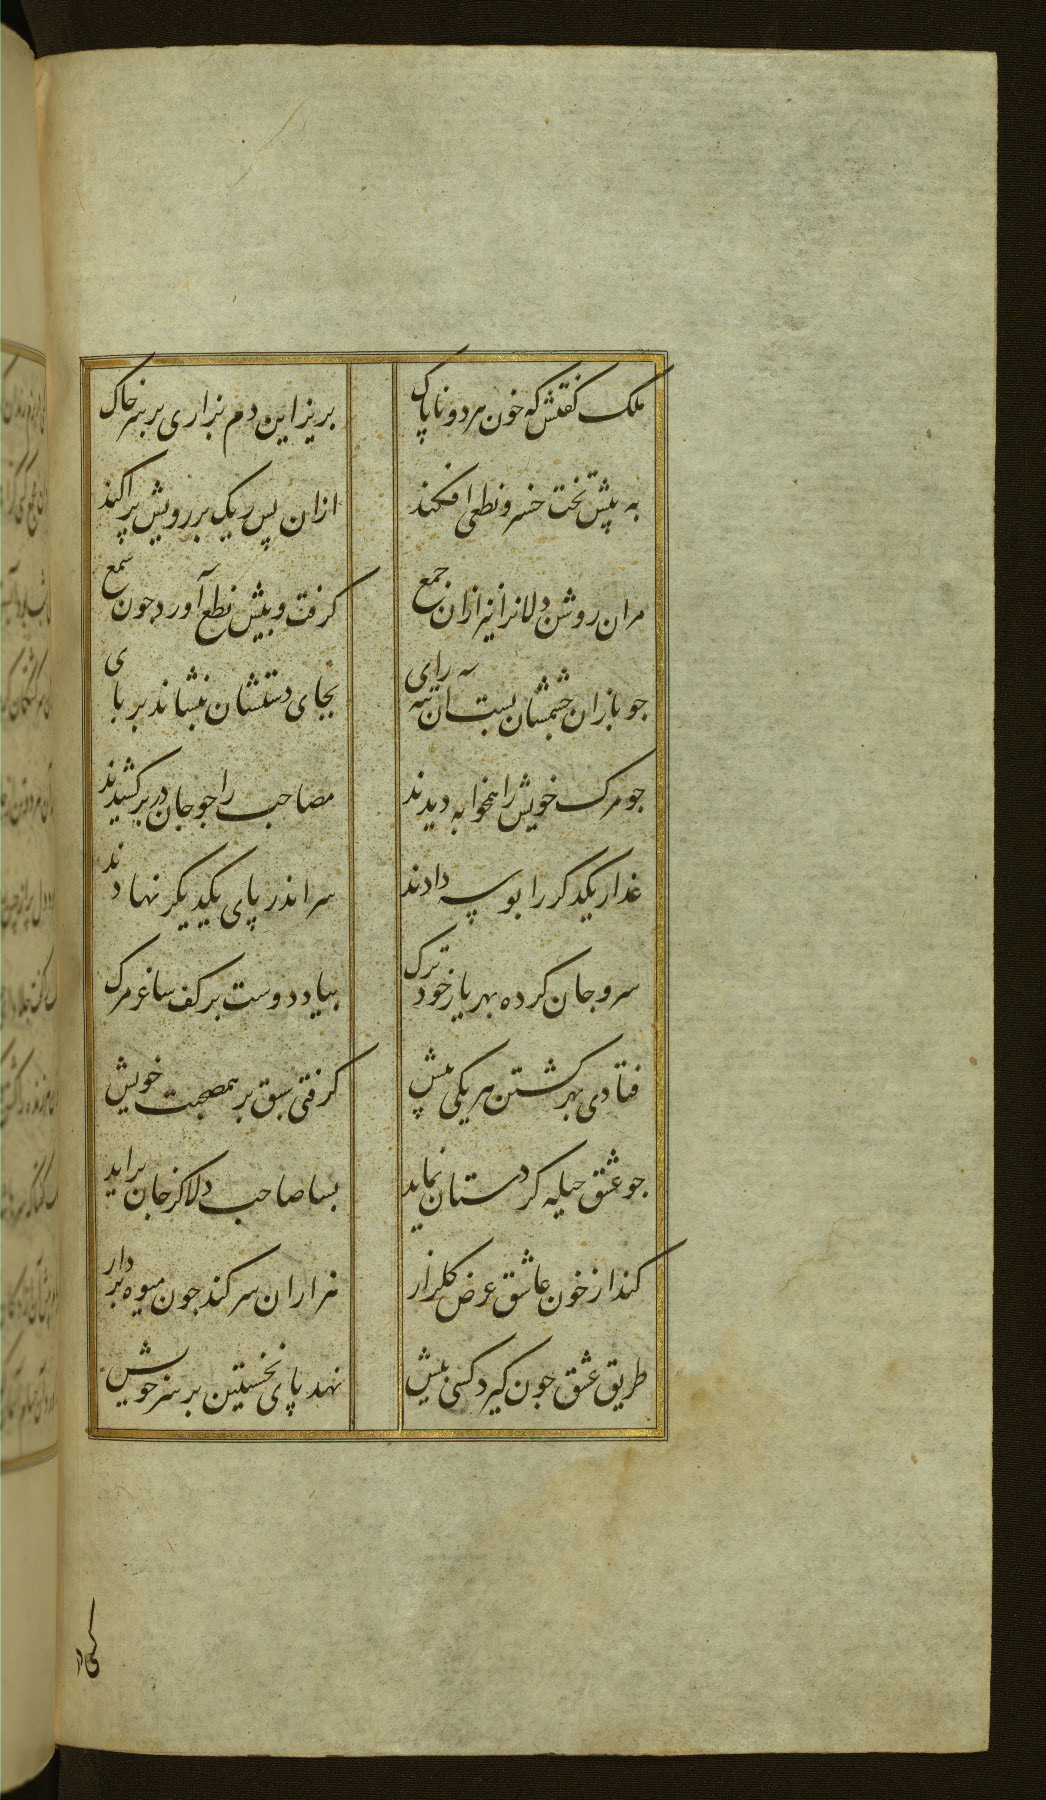 ملک کفتش که خون هر دو ناپاک
بریز این دم بزاری بر سر خاک
به پیش تخت خسرو نطعی افکند
ازان پس ریک بر رویش پراکند
مران روشن دلانرا نیز ازان جمع
کرفت و پیش نطع آورد چون شمع
جو بازان چشمشان بست آن سیه رای
بجای دستشان بنشاند بر پای
جو مرک خویش را همخوابه دیدند
مصاحب را جو جان در بر کشیدند
عذار یکدکر را بوسه دادند
سر اندر پای یکدیکر نهادند
سر و جان کرده بهر یار خود ترک
بیاد دوست بر کف ساغر مرک
فتادی بهر کشتن هر یکی پیش
کرفتی سبق بر همصحبت خویش
جو عشق حیله کر دستان نماید
بسا صاحب دلا کز جان براید
کند از خون عاشق عرض کلزار
هزاران سر کند جون میوه بر دار
طریق عشق جون کیرد کسی پیش
نهد پای نخستین بر سر خویش